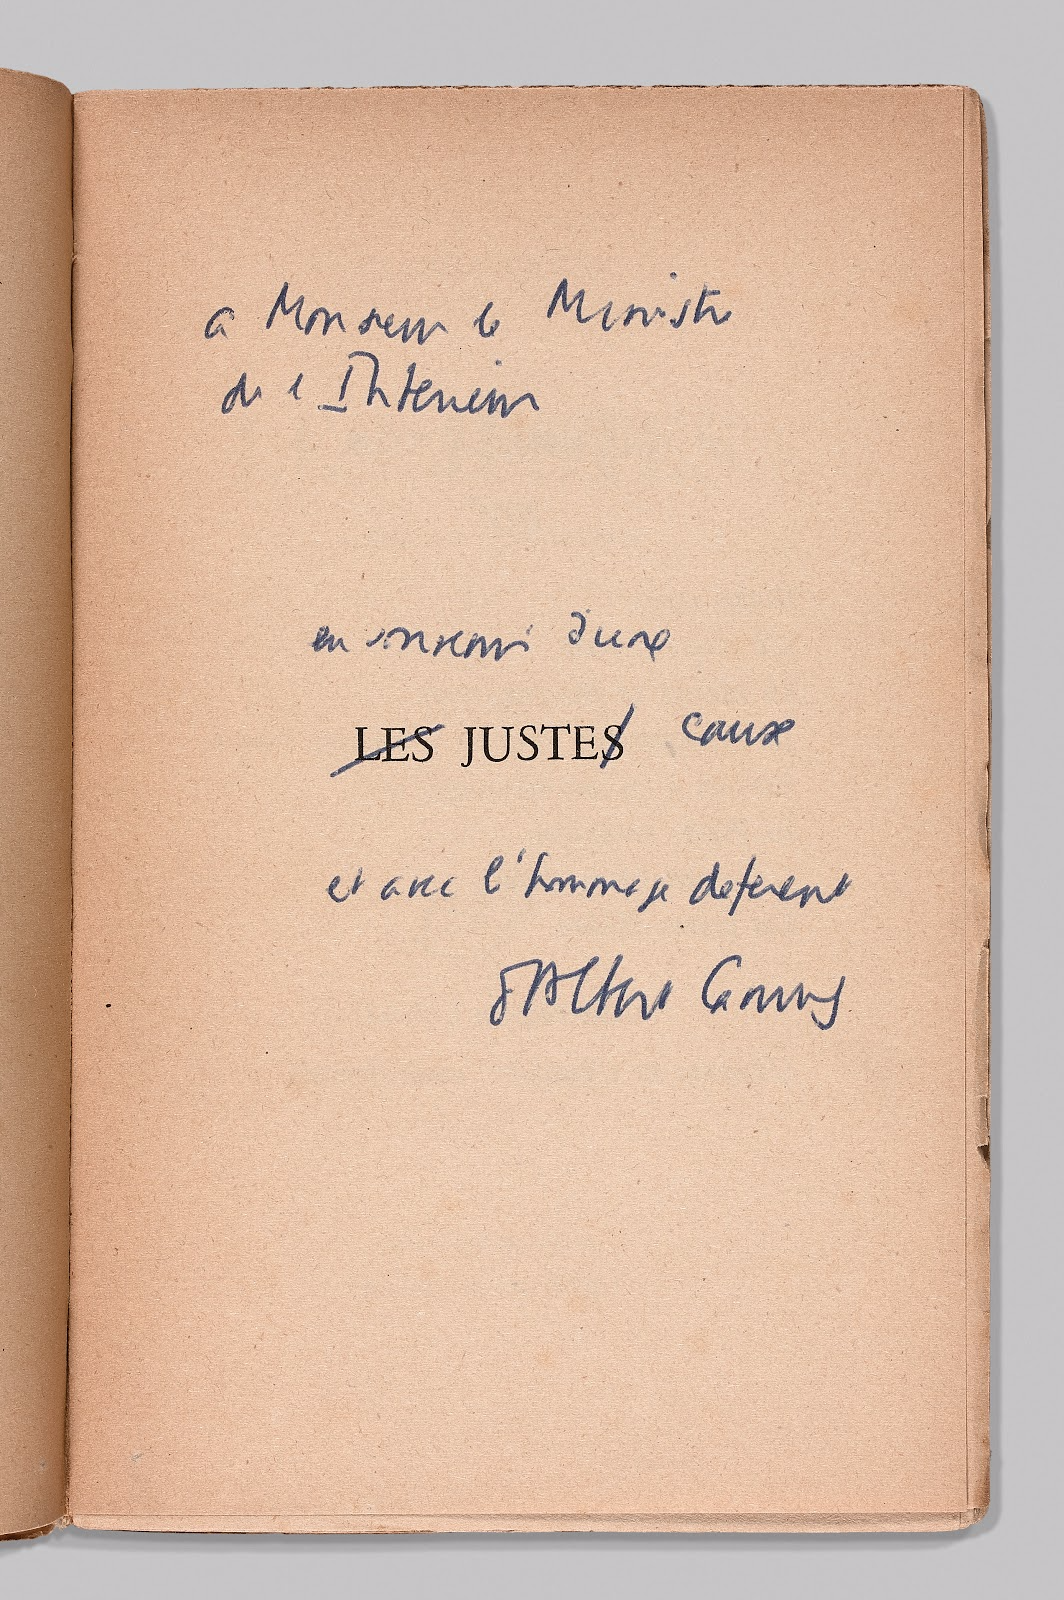 a Monsieur le Ministre
de l'Intérieur
en souvenir d'une
LES JUSTES cause
et avec l'hommage déférent
d'Albert Camus